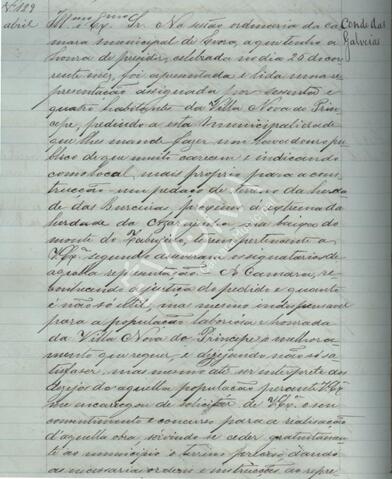 Nº 129
abril
Illmo e Exmo Sr. Na sessão ordinaria da ca-
Conde das
Galveias
mara municipal de Evora, a que tenho a
honra de presidir, celebrada no dia 25 do cor-
rente mez, foi apresentada e lida uma re-
presentação assignada por sessenta e
quatro habitantes da Villa Nova do Prin-
cipe, pedindo a esta municipalidade
que lhes mande fazer um lavadouro pu-
blico de que muito carecem e indicando
como local, mais proprio para a cons-
trucção um pedaço de terreno da herda-
de das proximo á extrema da
herdade da na baixa do
monte do terreno pertencente a
V. Exª segundo os signatarios de
aquella representação. A Camara, re-
conhecendo a justiça do pedido e quanto
é não só util, mas mesmo indispensavel
para a população laboriosa e honrada
da Villa Nova do Principe o melhora-
mento que requer, e desejando não só sa-
tisfazer, mas mesmo até ser interprete dos
desejos da aquella população perante V. Exª
me encarregou de solicitar de V. Exª o con-
sentimento e concurso para a realisação
d'aquella obra, servindo-se ceder gratuitamen-
te ao municipio o terreno dando
as necessarias ordens e instrucções ao repre-